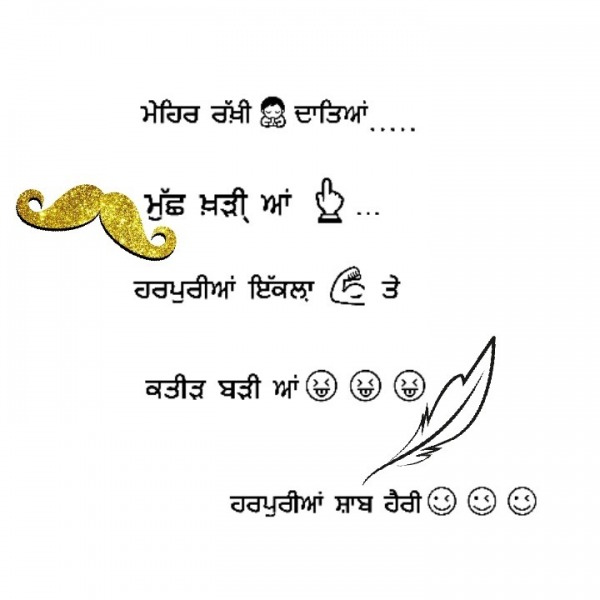 ਮੇਹਿਰ ਰੱਖੀ ਦਾਤਿਆਂ.....
ਮੁੱਛ ਖ਼ੜੀ੍ ਆਂ ...
ਹਰਪੁਰੀਆਂ ਇੱਕਲਾ਼ ਤੇ
ਕਤੀੜ ਬੜੀ ਆਂ
ਹਰਪੁਰੀਆਂ ਸ਼ਾਬ ਹੈਰੀ